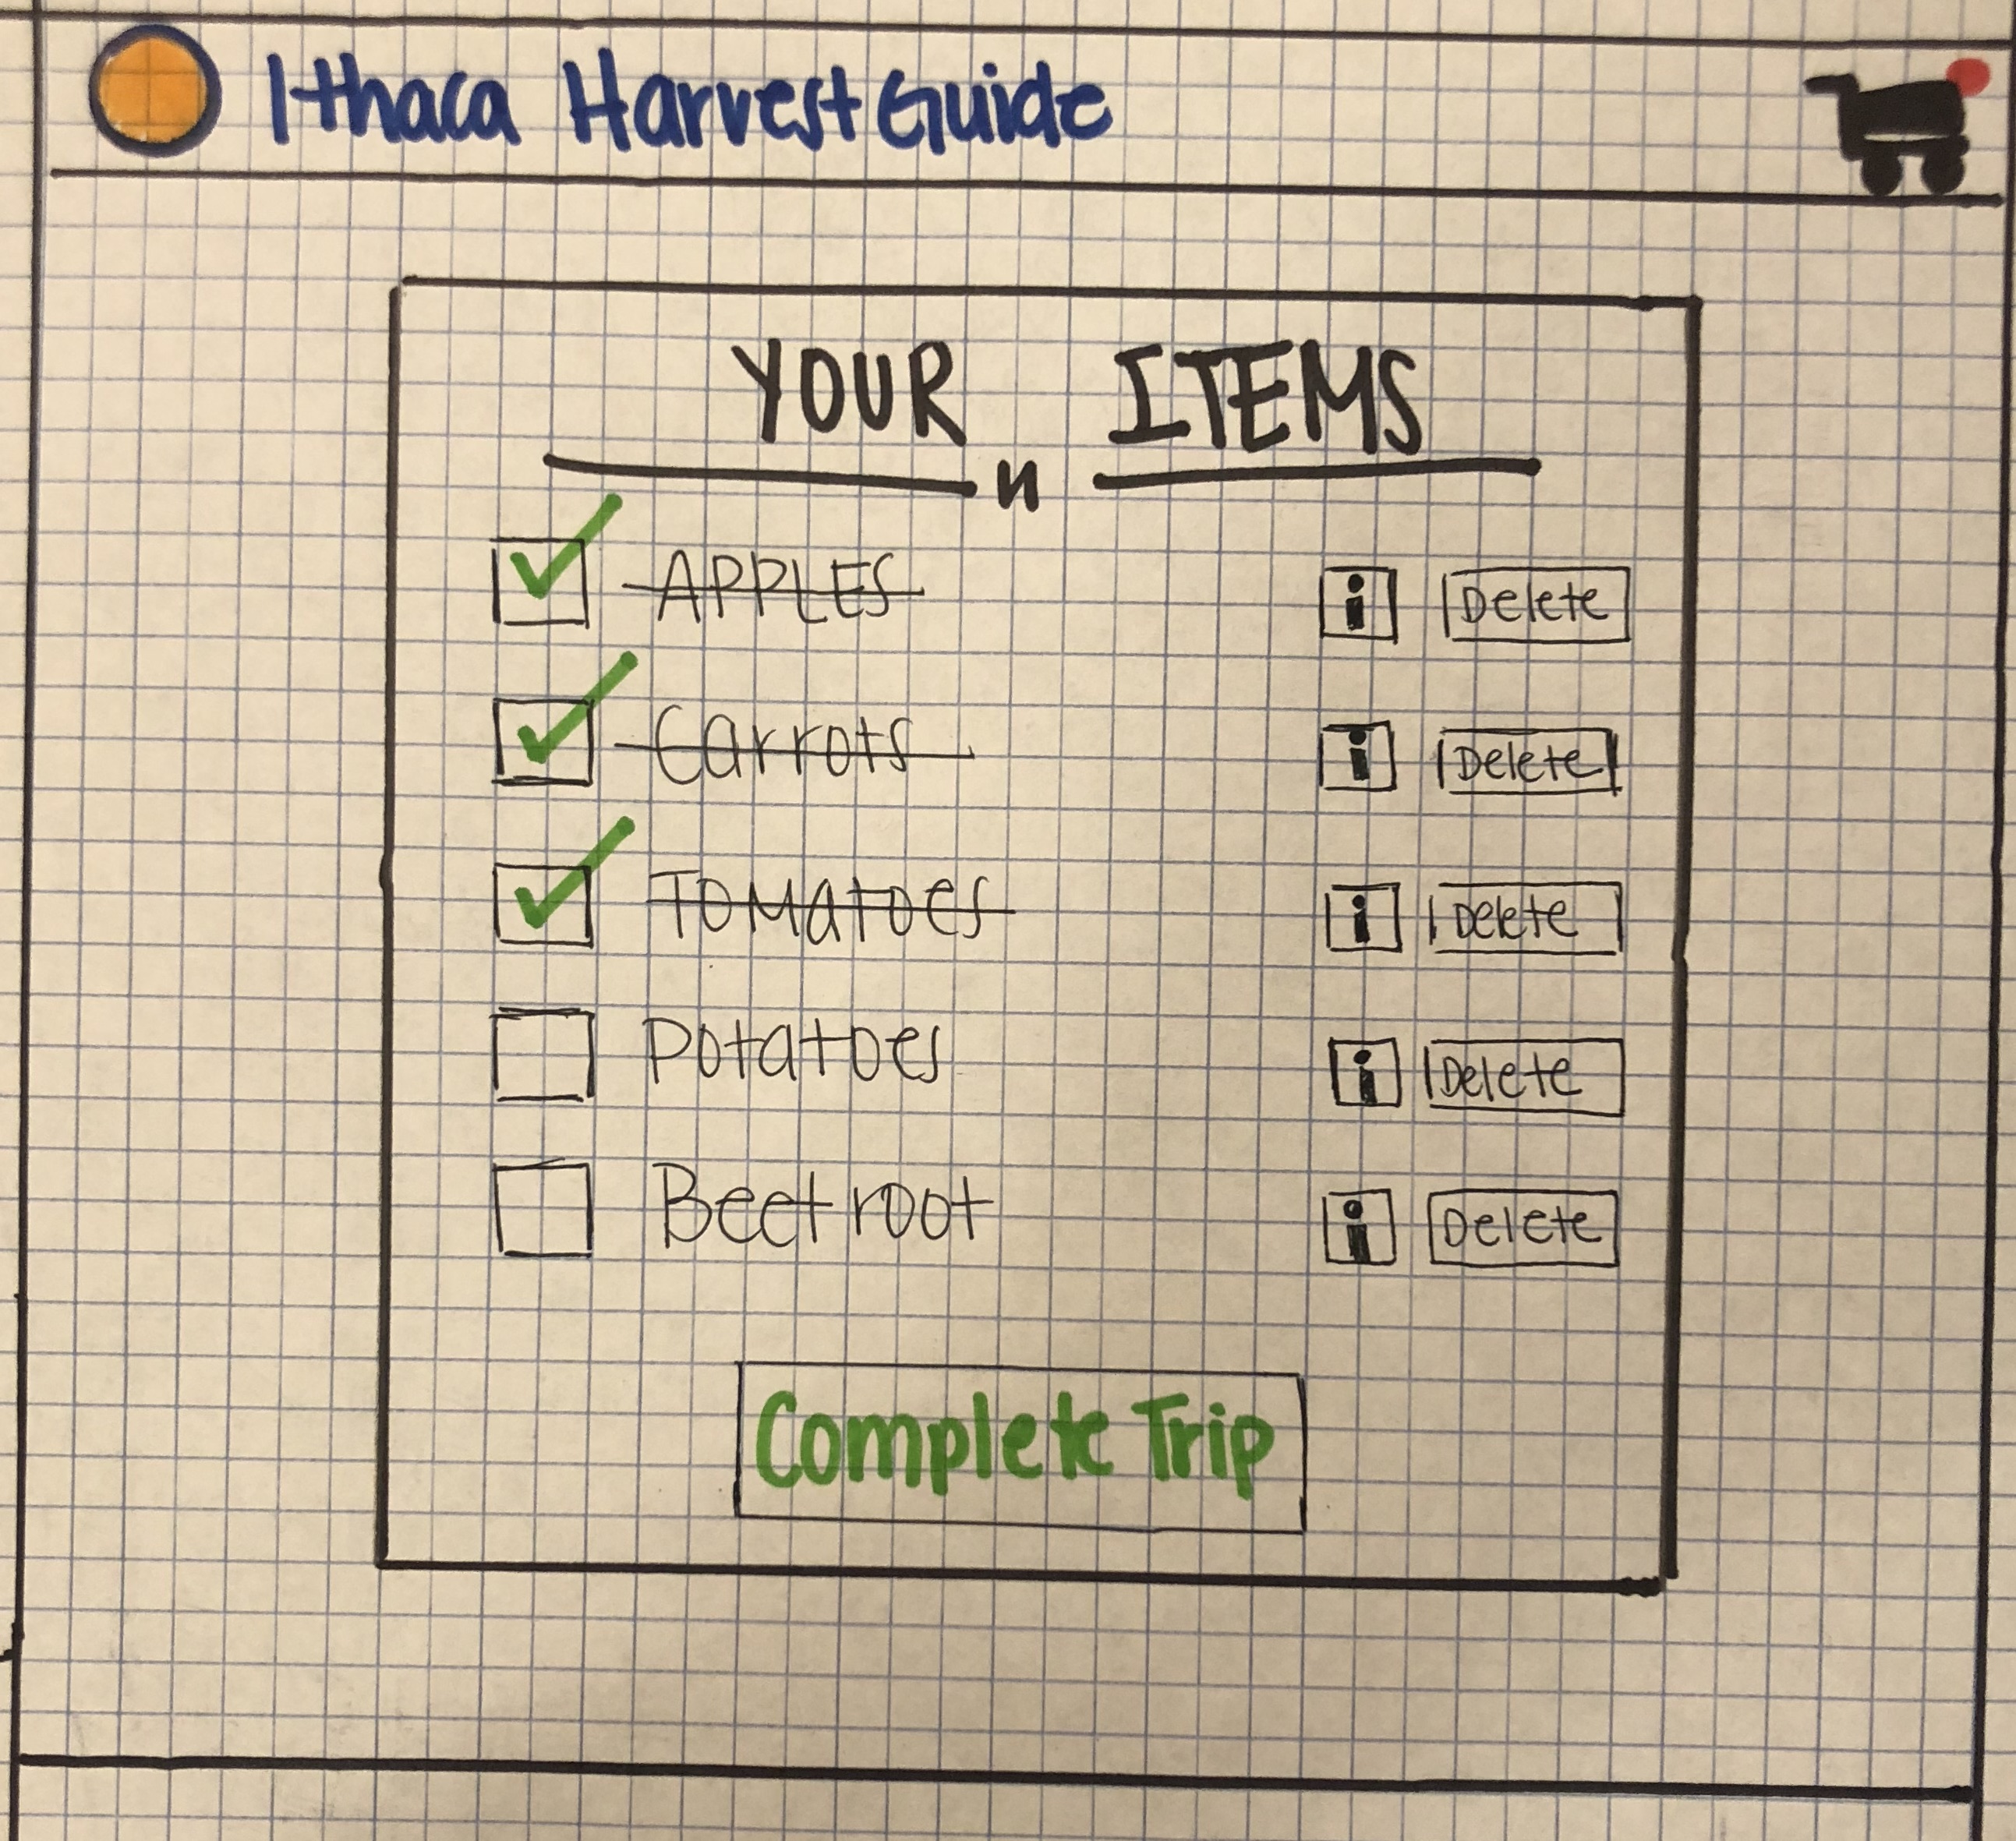 Ithaca Harvest Guide
YOUR ITEMS
n
APPLES i Delete
Carrots i Delete
Tomatoes i Delete
Potatoes i Delete
Beetroot i Delete
Complete Trip